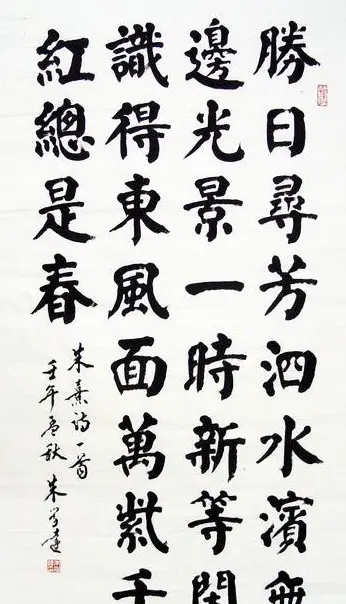 勝日尋芳泗水濱無
邊光景一時新等閒
識得東風面萬紫千
紅總是春
朱熹诗一首
壬午孟秋 朱学達